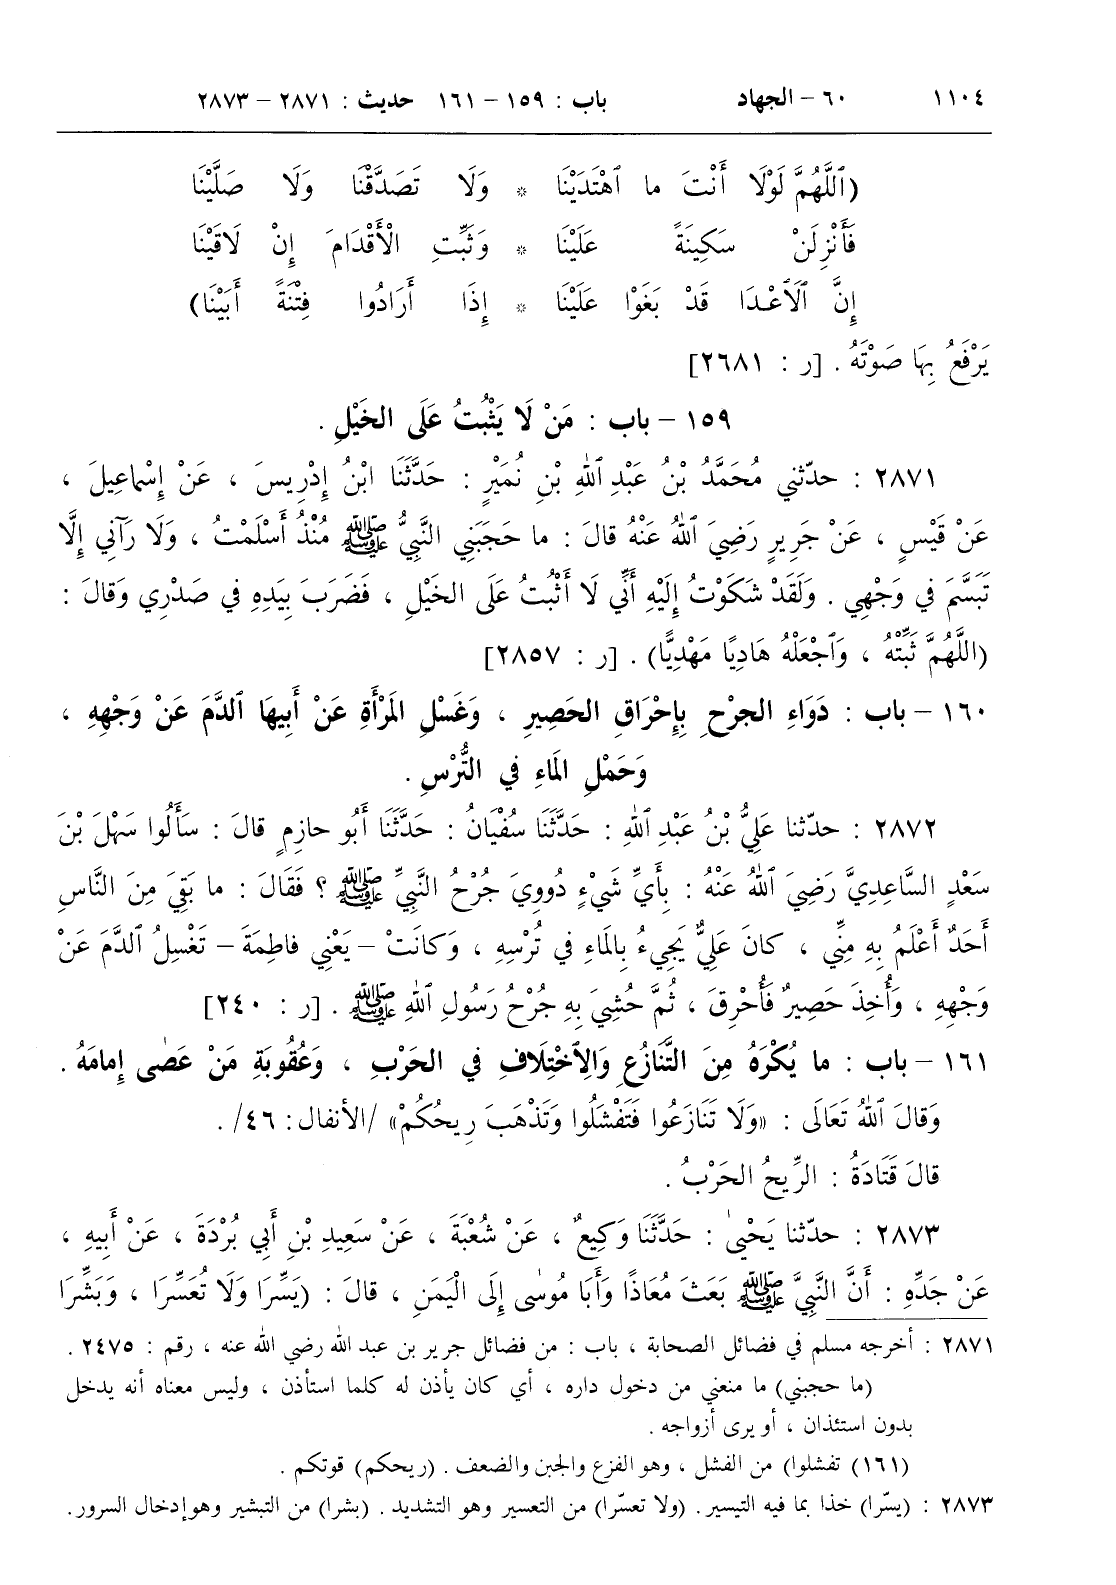 ١١٠٤ ٦٠ – الجهاد باب : ١٥٩ – ١٦١ حديث : ٢٨٧١ – ٢٨٧٣
(ٱللَّهُمَّ لَوْلَا أَنْتَ ما ٱهْتَدَيْنَا * وَلَا تَصَدَّقْنَا وَلَا صَلَّيْنَا
فَأَنْزِلَنْ سَكِينَةً عَلَيْنَا * وَثَبِّتِ الْأَقْدَامَ إِنْ لَاقَيْنَا
إِنَّ ٱلْأَعْدَا قَدْ بَغَوْا عَلَيْنَا * إِذَا أَرَادُوا فِتْنَةً أَبَيْنَا)
يَرْفَعُ بِهَا صَوْتَهُ . [ر : ٢٦٨١]
١٥٩ – باب : مَنْ لَا يَثْبُتُ عَلَى الخَيْلِ .
٢٨٧١ : حدّثني مُحَمَّدُ بْنُ عَبْدِ ٱللهِ بْنِ نُمَيْرٍ : حَدَّثَنَا ابْنُ إِدْرِيسَ ، عَنْ إِسْماعِيلَ ،
عَنْ قَيْسٍ ، عَنْ جَرِيرٍ رَضِيَ ٱللهُ عَنْهُ قالَ : ما حَجَبَنِي النَّبِيُّ ﷺ مُنْذُ أَسْلَمْتُ ، وَلَا رَآنِي إِلَّا
تَبَسَّمَ في وَجْهِي . وَلَقَدْ شَكَوْتُ إِلَيْهِ أَنِّي لَا أَثْبُتُ عَلَى الخَيْلِ ، فَضَرَبَ بِيَدِهِ في صَدْرِي وَقالَ :
(اللَّهُمَّ ثَبِّتْهُ ، وَٱجْعَلْهُ هَادِيًا مَهْدِيًّا) . [ر : ٢٨٥٧]
١٦٠ – باب : دَوَاءِ الجرْحِ بِإِحْرَاقِ الحَصِيرِ ، وَغَسْلِ المَرْأَةِ عَنْ أَبِيهَا ٱلدَّمَ عَنْ وَجْهِهِ ،
وَحَمْلِ المَاءِ في التُّرْسِ .
٢٨٧٢ : حدّثنا عَلِيُّ بْنُ عَبْدِ ٱللهِ : حَدَّثَنَا سُفْيَانُ : حَدَّثَنَا أَبُو حازِمٍ قالَ : سَأَلُوا سَهْلَ بْنَ
سَعْدٍ السَّاعِدِيَّ رَضِيَ ٱللهُ عَنْهُ : بِأَيِّ شَيْءٍ دُووِيَ جُرْحُ النَّبِيِّ ﷺ ؟ فَقَالَ : ما بَقِيَ مِنَ النَّاسِ
أَحَدٌ أَعْلَمُ بِهِ مِنِّي ، كانَ عَلِيٌّ يَجِيءُ بِالمَاءِ في تُرْسِهِ ، وَكانَتْ – يَعْنِي فاطِمَةَ – تَغْسِلُ ٱلدَّمَ عَنْ
وَجْهِهِ ، وَأُخِذَ حَصِيرٌ فَأُحْرِقَ ، ثُمَّ حُشِيَ بِهِ جُرْحُ رَسُولِ ٱللهِ ﷺ . [ر : ٢٤٠]
١٦١ – باب : ما يُكْرَهُ مِنَ التَّنَازُعِ وَالِٱخْتِلَافِ في الحَرْبِ ، وَعُقُوبَةِ مَنْ عَصٰى إِمامَهُ .
وَقالَ ٱللهُ تَعَالَى : «وَلَا تَنَازَعُوا فَتَفْشَلُوا وَتَذْهَبَ رِيحُكُمْ» /الأنفال: ٤٦/ .
قالَ قَتَادَةُ : الرِّيحُ الحَرْبُ .
٢٨٧٣ : حدّثنا يَحْيىٰ : حَدَّثَنَا وَكِيعٌ ، عَنْ شُعْبَةَ ، عَنْ سَعِيدِ بْنِ أَبِي بُرْدَةَ ، عَنْ أَبِيهِ ،
عَنْ جَدِّهِ : أَنَّ النَّبِيَّ ﷺ بَعَثَ مُعَاذًا وَأَبَا مُوسٰى إِلَى الْيَمَنِ ، قالَ : (يَسِّرَا وَلَا تُعَسِّرَا ، وَبَشِّرَا
٢٨٧١ : أخرجه مسلم في فضائل الصحابة ، باب : من فضائل جرير بن عبد الله رضي الله عنه ، رقم : ٢٤٧٥ .
(ما حجبني) ما منعني من دخول داره ، أي كان يأذن له كلما استأذن ، وليس معناه أنه يدخل
بدون استئذان ، أو يرى أزواجه .
(١٦١) تفشلوا) من الفشل ، وهو الفزع والجبن والضعف . (ريحكم) قوتكم .
٢٨٧٣ : (يسّرا) خذا بما فيه التيسير . (ولا تعسّرا) من التعسير وهو التشديد . (بشرا) من التبشير وهو إدخال السرور .